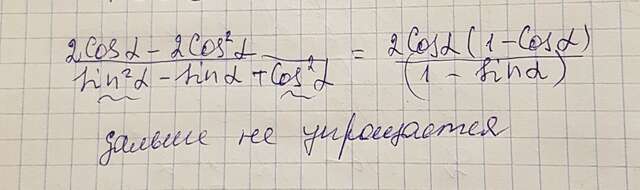 (2cosα - 2cos²α)/(sin²α - sinα + cos²α) = 2cosα(1 - cosα)/(1 - sinα)
дальше не упрощается